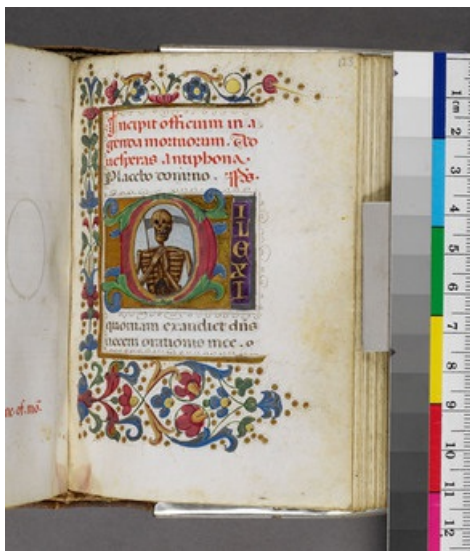 123
Incipit officium in a
genda mortuorum. Ad
uesperas antiphona.
Placebo domino. Ps.
DILEXI
quoniam exaudiet dns
uocem orationis mee. o
1
cm
2
3
4
5
6
7
8
9
10
11
12